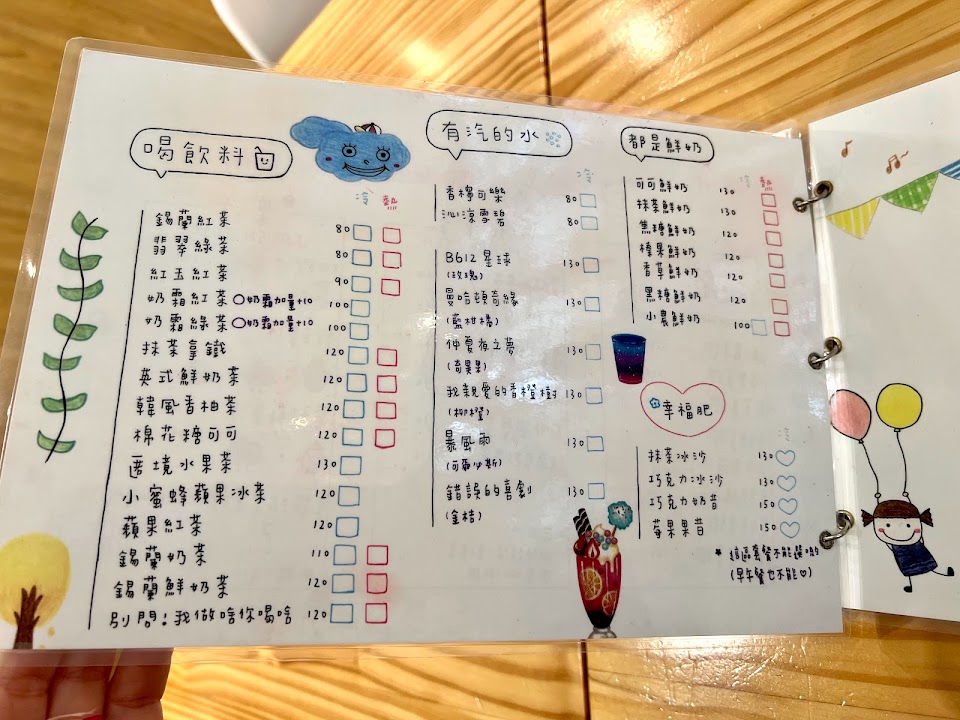 喝飲料
冷 熱
錫蘭紅茶 80
翡翠綠茶 80
紅玉紅茶 90
奶霜紅茶 ○奶霜加量+10 100
奶霜綠茶 ○奶霜加量+10 100
抹茶拿鐵 120
英式鮮奶茶 120
韓風香柚茶 120
棉花糖可可 120
匿境水果茶 130
小蜜蜂蘋果冰茶 120
蘋果紅茶 120
錫蘭奶茶 110
錫蘭鮮奶茶 120
別問!我做啥你喝啥 120
有汽的水
冷
香檸可樂 80
沁涼雪碧 80
B612星球 130
(玫瑰)
曼哈頓奇緣 130
(藍柑橘)
仲夏夜之夢 130
(奇異果)
我親愛的香橙樹 130
(柳橙)
暴風雨 130
(可爾必斯)
錯誤的喜劇 130
(金桔)
都是鮮奶
冷 熱
可可鮮奶 130
抹茶鮮奶 130
焦糖鮮奶 120
榛果鮮奶 120
香草鮮奶 120
黑糖鮮奶 120
小農鮮奶 100
幸福肥
冷
抹茶冰沙 130
巧克力冰沙 130
巧克力奶昔 150
莓果果昔 150
★這區套餐不能選喲
(早午餐也不能♡)